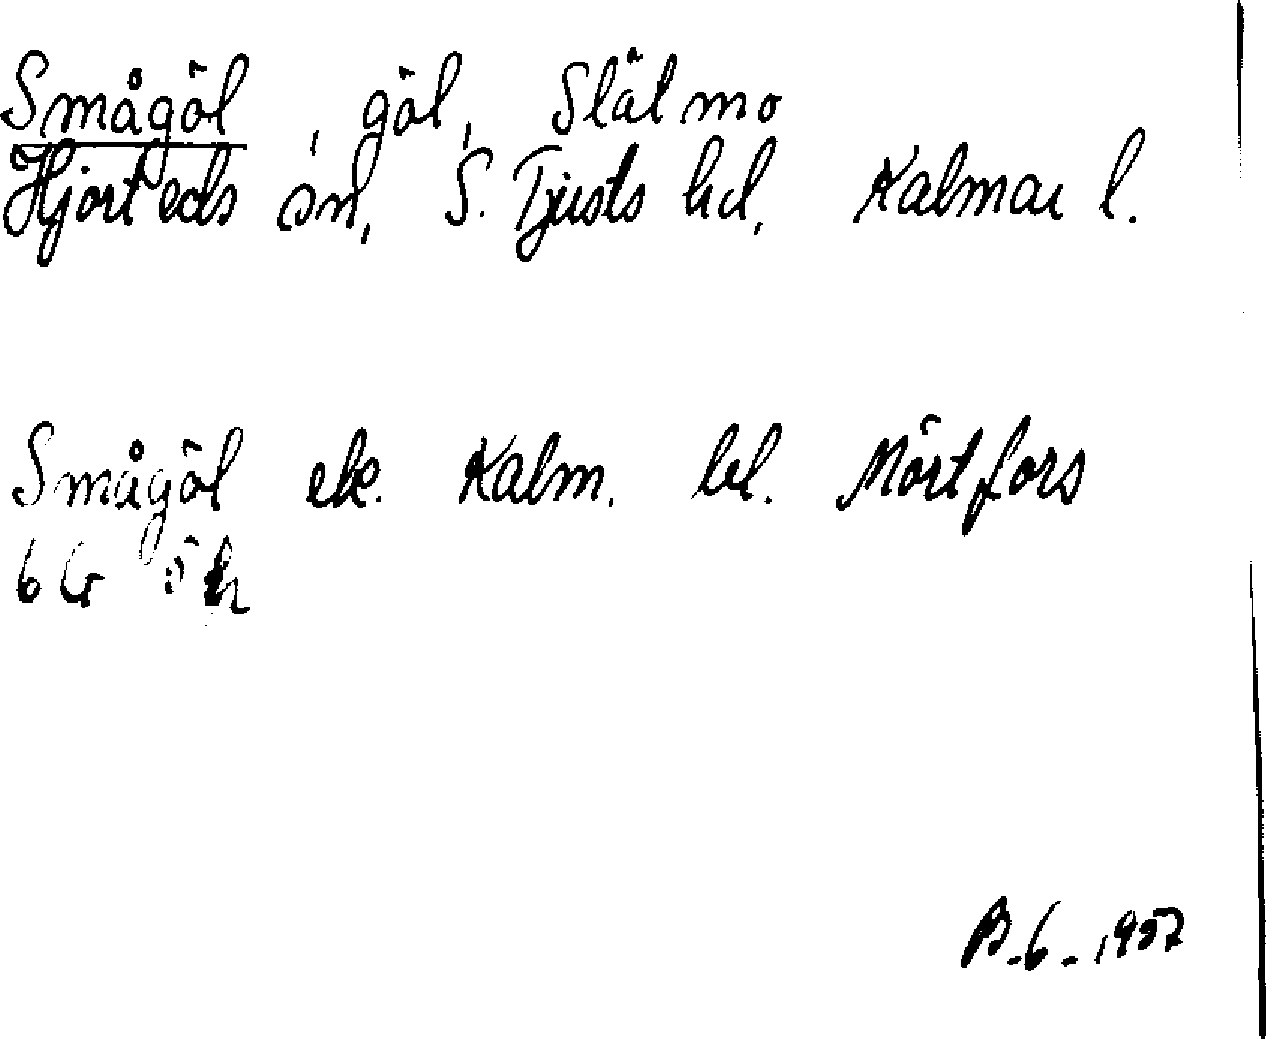 Smågöl, göl, Slätmo
Hjorteds sn, S. Tjusts hd, Kalmar l.
Smågöl ek. Kalm. bl. Mörtfors
6 G
B.6.1957